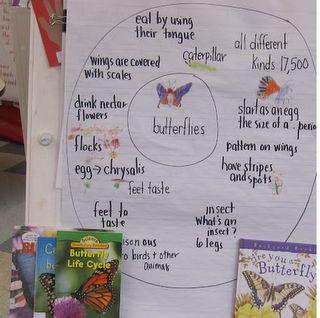 eat by using
their tongue
wings are covered
with scales
caterpillar
all different
kinds 17,500
drink nectar
flowers
butterflies
start as an egg
the size of a
flocks
pattern on wings
egg → chrysalis
have stripes
and spots
feet taste
feet to
taste
insect
what's an
insect?
6 legs
to birds + other
animals
Butterfly
Life Cycle
Are you a
Butterfly